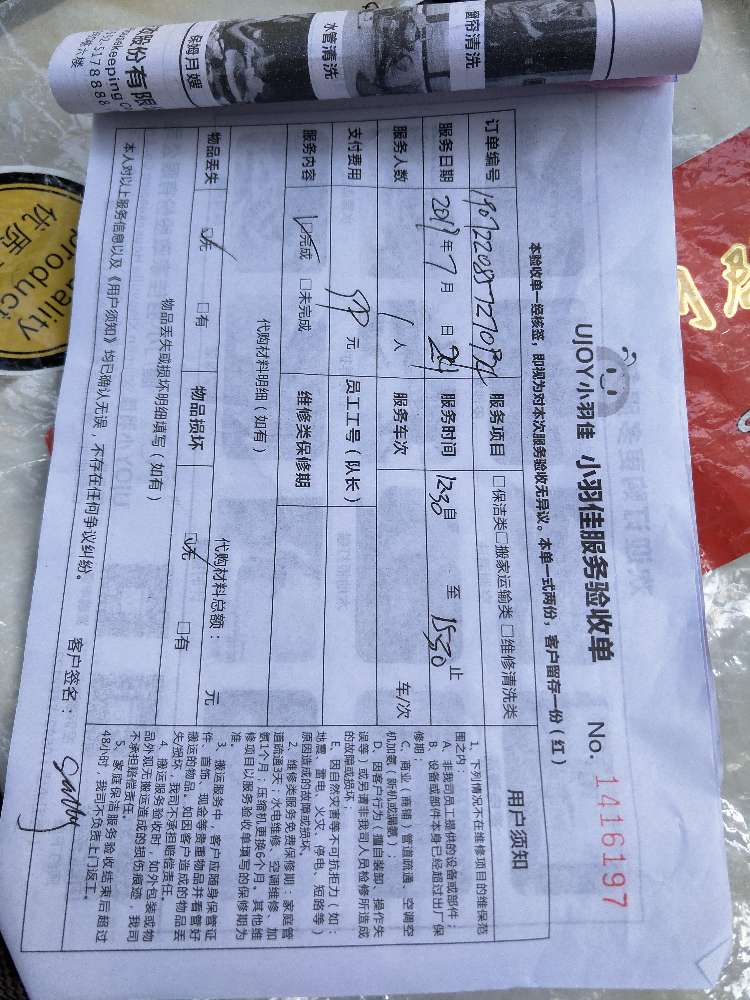 保姆月嫂
水管清洗
窗帘清洗
股份有限
5178888
UJOY小羽佳 小羽佳服务验收单 No. 1416197
本验收单一经核签，即视为对本次服务验收无异议。本单一式两份，客户留存一份（红）
订单编号
服务项目 □保洁类□搬家运输类□维修清洗类
服务日期 2019年7月 日 24 服务时间 12:30 自 至 15:30 止
服务人数 1 人 服务车次 车/次
支付费用 元 员工工号（队长）
服务内容 □完成 □未完成 维修类保修期
代购材料明细（如有） 代购材料总额： 元
物品丢失 □无 □有 物品损坏 □无 □有
物品丢失或损坏明细填写（如有）
本人对以上服务信息以及《用户须知》均已确认无误，不存在任何争议纠纷。
客户签名： Sally
用户须知
1、下列情况不在维修项目的维保范
围之内：
A、非我司员工提供的设备或部件；
B、设备或部件本身已经超过出厂保
修期；
C、商业（商铺、管道疏通、空调空
机加氨、新机或漏氨）；
D、因客户行为（擅自装卸、操作失
误等）或另请非我司人员检修所造成
的故障或损坏。
E、因自然灾害等不可抗拒力（如：
地震、雷电、火灾、停电、短路等）
原因造成的故障或损坏。
2、维修类服务免费保修期：家庭管
道疏通3天；水电维修、空调维修、加
氨1个月；压缩机更换6个月。其他维
修项目以服务验收单填写的保修期为
准。
3、搬运服务中，客户应随身保管证
件、首饰、现金等贵重物品并看管好
搬运的物品。如因客户造成的物品丢
失/损坏，我司不承担赔偿责任。
4、搬运服务验收时，如外包装或物
品外观无搬运造成的损伤痕迹，我司
不承担赔偿责任。
5、家庭保洁服务验收结束后超过
48小时，我司不负责上门返工。
product
quality
优质